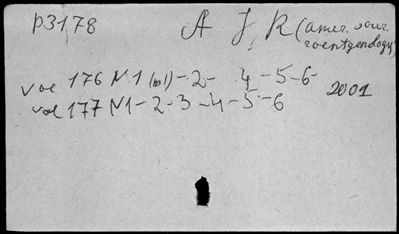 P3178 A J R (amer. jour.
roentgenology)
vol 176 N1 (ч1)-2- 4-5-6
vol 177 N1-2-3-4-5-6 2001